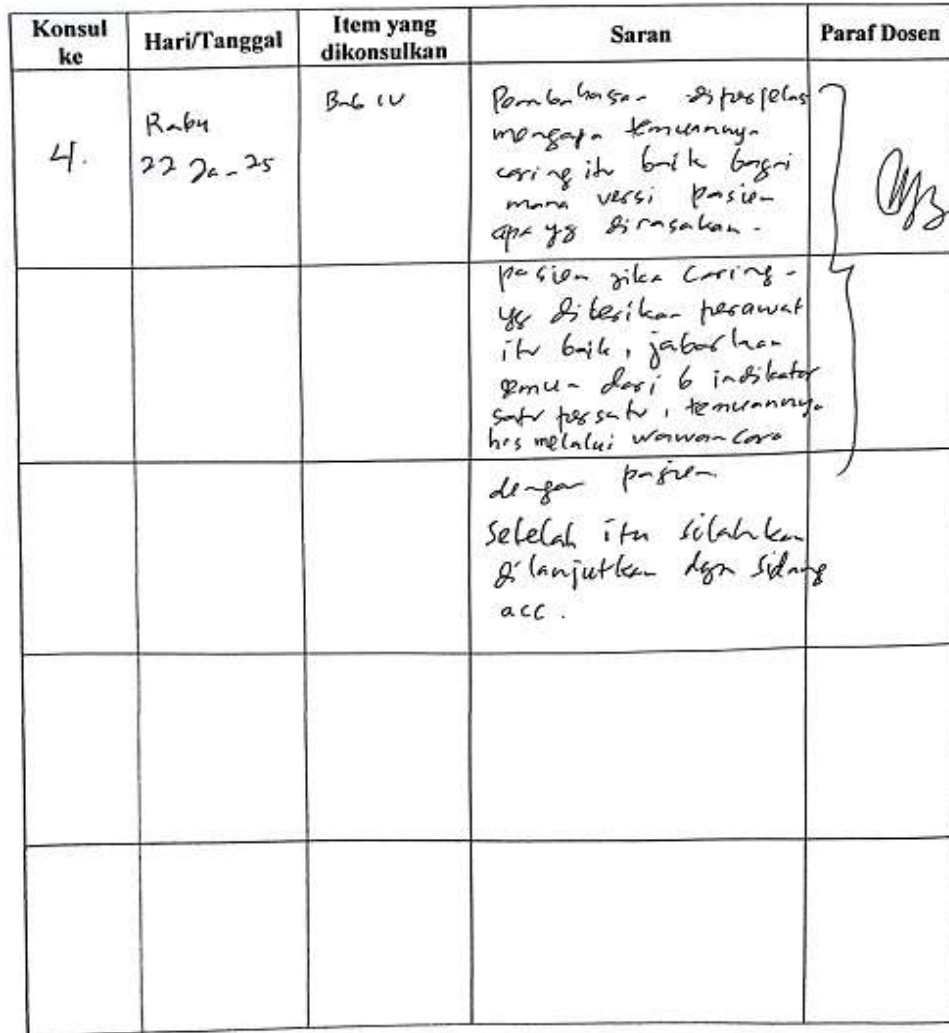 Konsul ke
Hari/Tanggal
Item yang dikonsulkan
Saran
Paraf Dosen
4.
Rabu
22 Jan - 25
Bab IV
Pembahasan diperjelas
mengapa temuannya
caring itu baik bagai
mana versi pasien
apa yg dirasakan -
pasien jika caring -
yg diberikan perawat
itu baik, jabarkan
semua dari 6 indikator
satu persatu, temuannya
hrs melalui wawancara
dengan pasien
Setelah itu silahkan
dilanjutkan dgn sidang
acc.